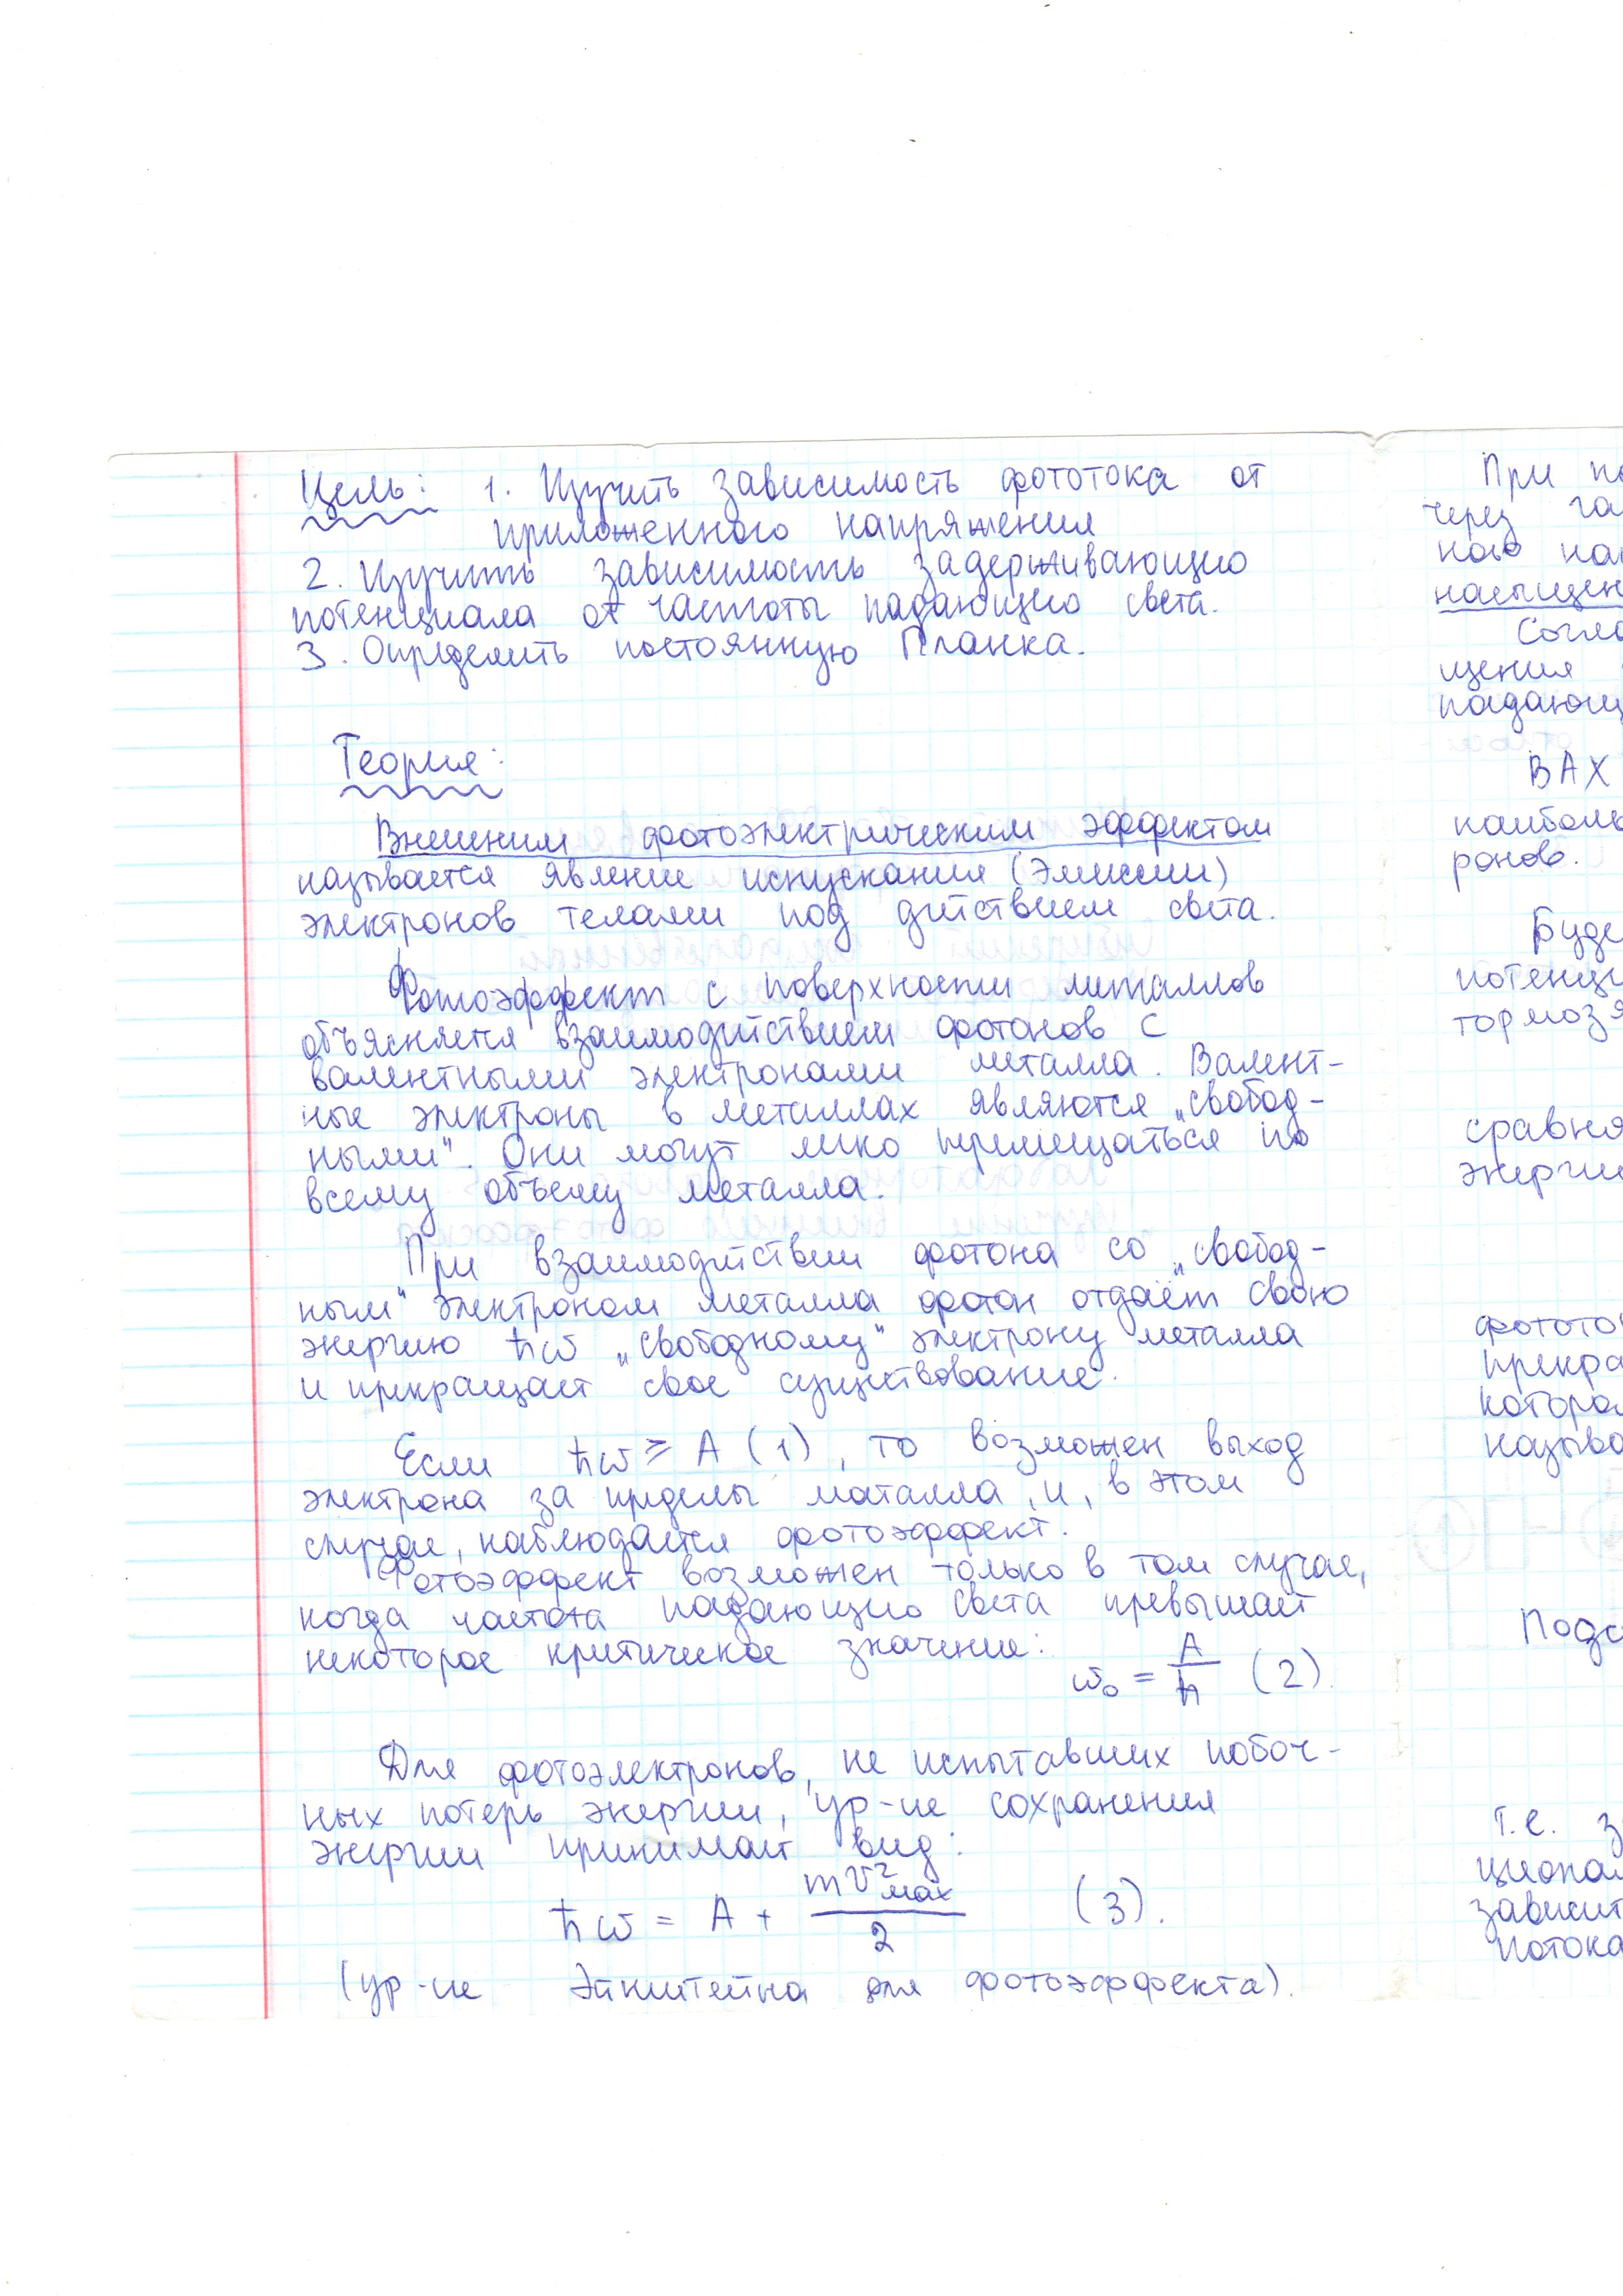 Цель: 1. Изучить зависимость фототока от
приложенного напряжения
2. Изучить зависимость задерживающего
потенциала от частоты падающего света.
3. Определить постоянную Планка.
Теория:
Внешним фотоэлектрическим эффектом
называется явление испускания (эмиссии)
электронов телами под действием света.
Фотоэффект с поверхности металлов
объясняется взаимодействием фотонов с
валентными электронами металла. Валент-
ные электроны в металлах являются „свобод-
ными“. Они могут легко перемещаться по
всему объему металла.
При взаимодействии фотона со „свобод-
ным“ электроном металла фотон отдаёт свою
энергию ħω „свободному“ электрону металла
и прекращает свое существование.
Если ħω ≥ A (1), то возможен выход
электрона за пределы маталла, и, в этом
случае, наблюдается фотоэффект.
Фотоэффект возможен только в том случае,
когда частота падающего света превышает
некоторое критическое значение:
ω₀ = A/ħ (2).
Для фотоэлектронов, не испытавших побоч-
ных потерь энергии, ур-ие сохранения
энергии принимает вид:
ħω = A + mV²мах/2 (3).
(ур-ие Эйнштейна для фотоэффекта).
При по
через га
ного на
насыщен
Согла
щения
падающ
ВАХ
наиболь
ронов.
Буде
потенци
тормозя
сравня
энерги
фототок
прекра
которо
называ
Подс
т.е. з
циона
зависит
потока